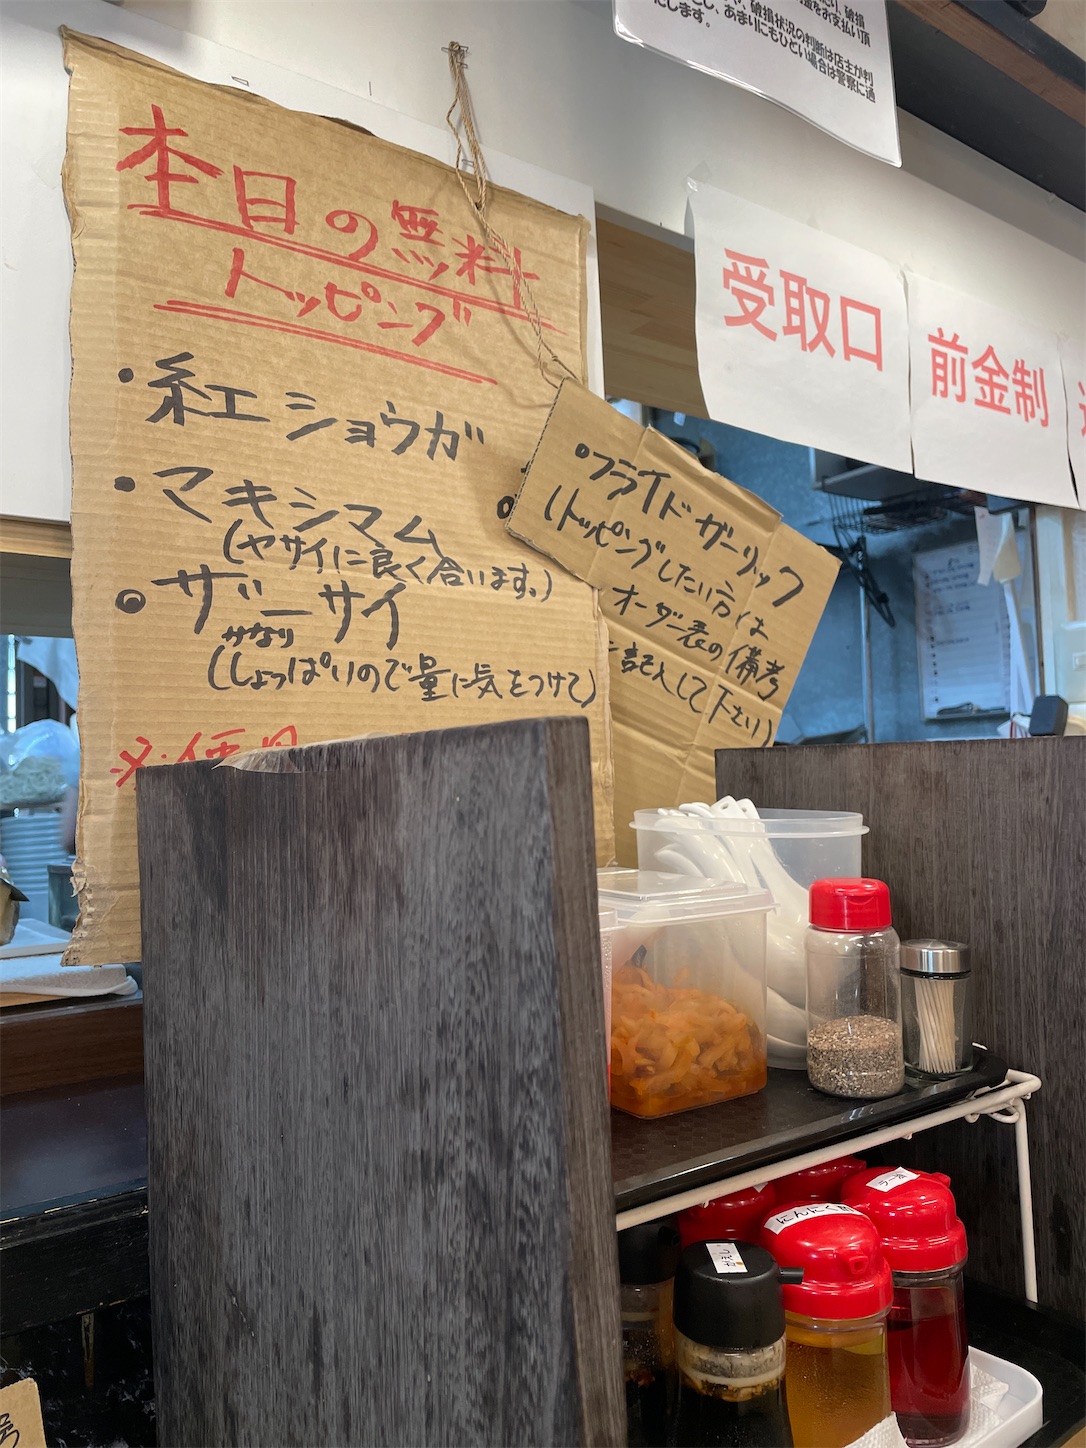 本日の無料
トッピング
・紅ショウガ
・マキシマム
(ヤサイに良く合います。)
・ザーサイ
かなり
(しょっぱいので量に気をつけて)
・フライドガーリック
(トッピングしたい方は
オーダー表の備考
に記入して下さい)
破損状況の判断は店主が判
し、あまりにもひどい場合は警察に通
にします。
受取口
前金制
にんにく酢
ラー油